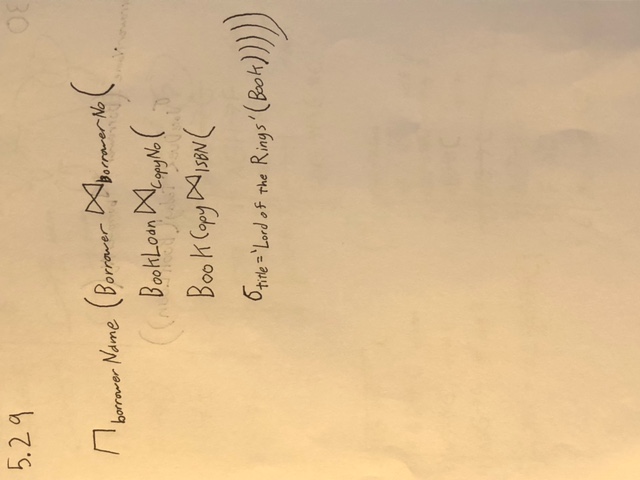 5.29
∏ borrowerName (Borrower ⋈ BorrowerNo (
BookLoan ⋈ CopyNo (
BookCopy ⋈ ISBN (
σ title = 'Lord of the Rings' (Book)))))